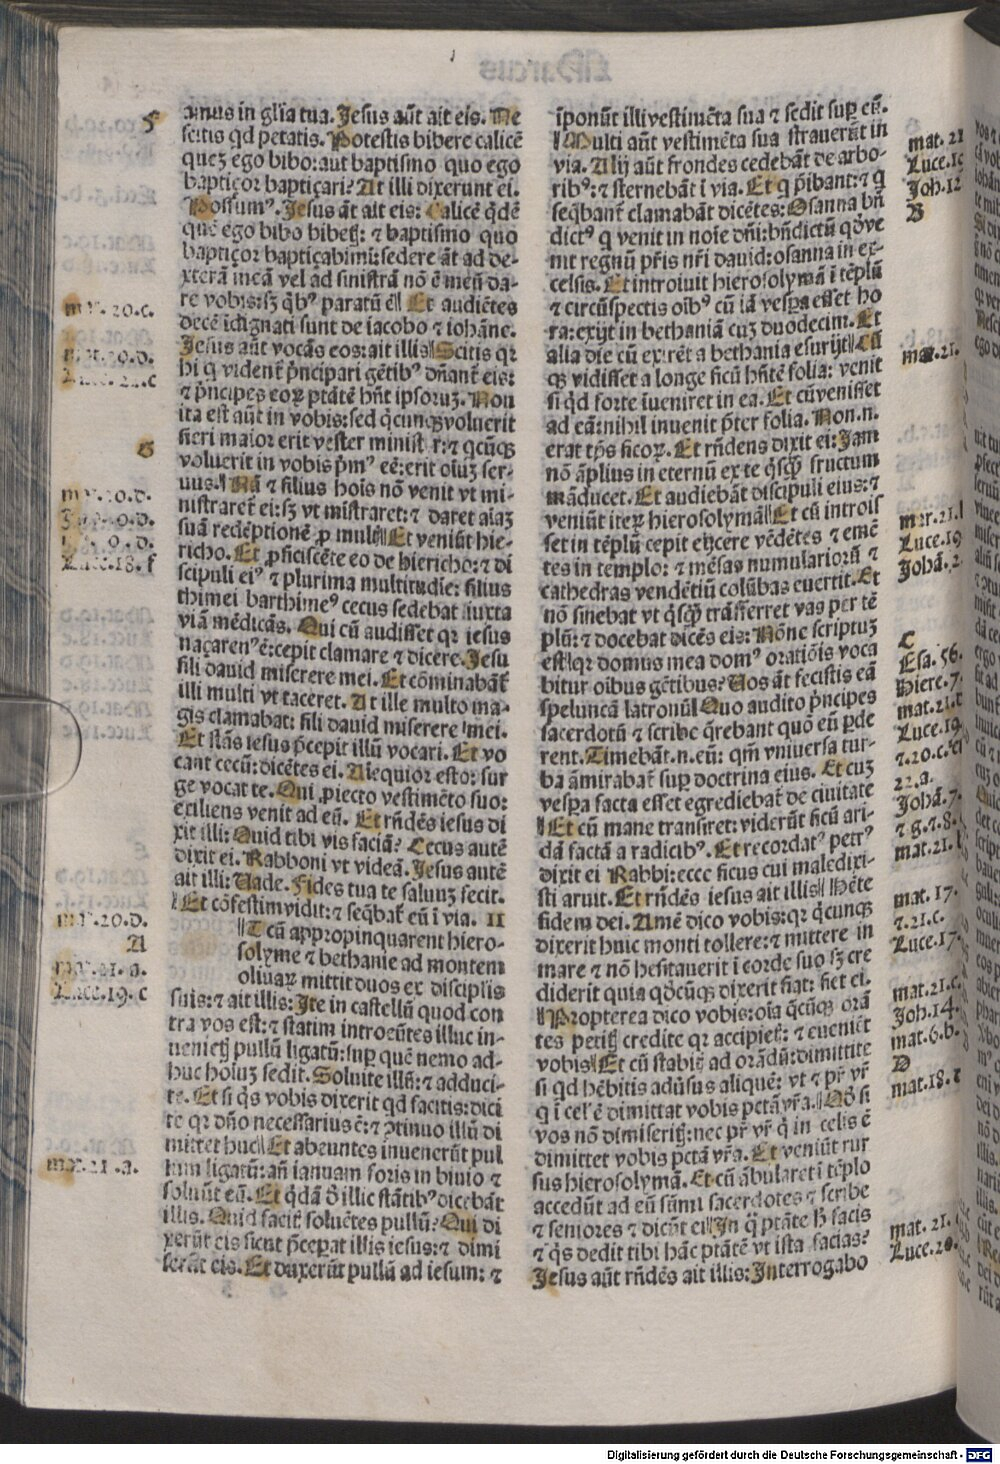 amus in gl̄ia tua. Jesus aūt ait eis. Ne
scitis qd petatis. Potestis bibere calicē
quez ego bibo: aut baptismo quo ego
baptiçor baptiçari? At illi dixerunt ei.
Possumꝰ. Jesus āt ait eis: Calicē q̇dē
quē ego bibo bibetꝭ: ⁊ baptismo quo
baptiçor baptiçabimī: sedere āt ad de-
xterā meā vel ad sinistrā nō ē meū da-
re vobis: sꝫ q̇bꝰ paratū ē Et audiētes
decē īdignati sunt de iacobo ⁊ iohāne.
Jesus aūt vocās eos: ait illis Scitis qꝛ
hi q vident̄ p̄ncipari gētibꝰ dn̄ant̄ eis:
⁊ p̄ncipes eoꝝ ptātē hn̄t ipsoruꝫ. Non
ita est aūt in vobis: sed q̇cunqꝫ voluerit
fieri maior erit vester minist r: ⁊ q̇cūqꝫ
voluerit in vobis p̄mꝰ eē: erit oīuꝫ ser-
uus. Nā ⁊ filius hoīs nō venit vt mi-
nistraret̄ ei: sꝫ vt mīstraret: ⁊ daret aīaꝫ
suā redēptionē ꝓ mult Et veniūt hie-
richo. Et ꝓficiscēte eo de hiericho: ⁊ di
scipuli eiꝰ ⁊ plurima multitudīe: filius
thimei barthimeꝰ cecus sedebat iuxta
viā mēdicās. Qui cū audisset qꝛ iesus
naçarenꝰ ē: cepit clamare ⁊ dicere. Jesu
fili dauid miserere mei. Et cōminabāt̄
illi multi vt taceret. At ille multo ma-
gis clamabat: fili dauid miserere mei.
Et stās iesus p̄cepit illū vocari. Et vo
cant cecū: dicētes ei. Aīequior esto: sur
ge vocat te. Qui ꝓiecto vestimēto suo:
exiliens venit ad eū. Et rn̄dēs iesus di
xit illi: Quid tibi vis faciā? Cecus autē
dixit ei. Rabboni vt videā. Jesus autē
ait illi: Uade. Fides tua te saluuꝫ fecit.
Et cōfestim vidit: ⁊ seq̄bat̄ eū ī via. 11
T cū appropinquarent hiero-
solyme ⁊ bethanie ad montem
oliuaꝝ mittit duos ex disciplis
suis: ⁊ ait illis: Ite in castellū quod con
tra vos est: ⁊ statim introeūtes illuc in-
uenietꝭ pullū ligatū: sup̄ quē nemo ad-
huc hoīuꝫ sedit. Soluite illū: ⁊ adduci-
te. Et si q̇s vobis dixerit qd facitis: dici
te qꝛ dn̄o necessarius ē: ⁊ ꝯtinuo illū di
mittet huc Et abeuntes inuenerūt pul
lum ligatū: an̄ ianuam foris in biuio ⁊
soluūt eū. Et q̇dā d̄ illic stātibꝰ dicebāt
illis. Quid facitꝭ soluētes pullū? Qui di
xerūt eis sicut p̄cep̄at illis iesus: ⁊ dimi
serūt eis. Et duxerūt pullū ad iesum: ⁊
īponūt illi vestimēta sua ⁊ sedit sup̄ eū.
Multi aūt vestimēta sua strauerūt in
via. Alij aūt frondes cedebāt de arbo-
ribꝰ: ⁊ sternebāt ī via. Et q p̄ibant: ⁊ q
seq̄bant̄ clamabāt dicētes: Osanna bn̄
dictꝰ q venit in noīe dn̄i: bn̄dictū qd̄ ve
nit regnū pr̄is nr̄i dauid: osanna in ex
celsis. Et introiuit hierosolymā ī tēplū
⁊ circūspectis oībꝰ cū iā vesp̄a esset ho
ra: exijt in bethaniā cuꝫ duodecim. Et
alia die cū exirēt a bethania esurijt Cū
qꝫ vidisset a longe ficū hn̄tē folia: venit
si q̇d forte īueniret in ea. Et cū venisset
ad eā: nihil inuenit p̄ter folia. Non .n.
erat tp̄s ficoꝝ. Et rn̄dens dixit ei: Jam
nō āplius in eternū ex te q̇sꝗ̄ fructum
māducet. Et audiebāt discipuli eius: ⁊
veniūt iteꝝ hierosolymā Et cū introis
set in tēplū cepit eijcere vēdētes ⁊ emē
tes in templo: ⁊ mēsas numularioꝝ ⁊
cathedras vendētiū colūbas euertit. Et
nō sinebat vt q̇sꝗ̄ trāsferret vas per tē
plū: ⁊ docebat dicēs eis: Nōne scriptuꝫ
est qꝛ domus mea domꝰ oratiōis voca
bitur oībus gētibus? Uos āt fecistis eā
speluncā latronū Quo audito p̄ncipes
sacerdotū ⁊ scribe q̄rebant quō eū ꝑde
rent. Timebāt .n. eū: qm̄ vniuersa tur-
ba āmirabat̄ sup̄ doctrina eius. Et cuꝫ
vesp̄a facta esset egrediebat̄ de ciuitate
Et cū mane transiret: viderūt ficū ari-
dā factā a radicibꝰ. Et recordatꝰ petrꝰ
dixit ei Rabbi: ecce ficus cui maledixi-
sti aruit. Et rn̄dēs iesus ait illis Hēte
fidem dei. Amē dico vobis: qꝛ q̇cunqꝫ
dixerit huic monti tollere: ⁊ mittere in
mare ⁊ nō hesitauerit ī corde suo sꝫ cre
diderit quia qd̄cūqꝫ dixerit fiat: fiet ei.
Propterea dico vobis: oīa q̄cūqꝫ orā
tes petitꝭ credite qꝛ accipietꝭ: ⁊ eueniēt
vobis Et cū stabitꝭ ad orādū: dimittite
si qd hēbitis adūsus aliquē: vt ⁊ pr̄ vr̄
q ī cel' ē dimittat vobis pctā vr̄a. Qd̄ si
vos nō dimiseritꝭ: nec pr̄ vr̄ q̇ in celis ē
dimittet vobis pctā vr̄a. Et veniūt rur
sus hierosolymā. Et cū ābularet ī tēplo
accedūt ad eū sūmi sacerdotes ⁊ scribe
⁊ seniores ⁊ dicūt ei In q̄ ptāte h̄ facis
⁊ q̇s dedit tibi hāc ptātē vt ista facias?
Jesus aūt rn̄dēs ait illis: Interrogabo
mat. 21
Luce.19
Joh.12
B
mat.21.
mat.21.
Luce.19
Johā.2.
C
Esa. 56.
Hiere.7.
mat.21.
Luce.19.
⁊.20.c.
22.a.
Johā.7.
⁊ 8.
mat.21.
mat. 17.
⁊.21.c.
Luce.17.
mat.21.c.
Joh.14.
mat.6.b.
D
mat.18.
mat. 21.
Luce.20.
20.c.
20.d.
G
20.d.
Luce.18.f
20.d.
A
21. a.
Luce.19. c
21.a.
Digitalisierung gefördert durch die Deutsche Forschungsgemeinschaft - DFG